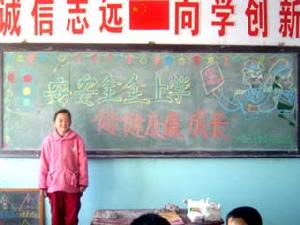 诚信志远 向学创新
安安全全上学
健健康康成长